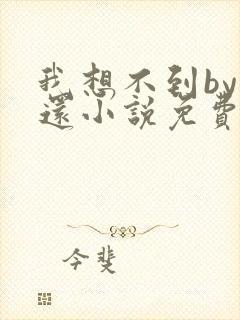 我想不到by
還小說免費
今斐